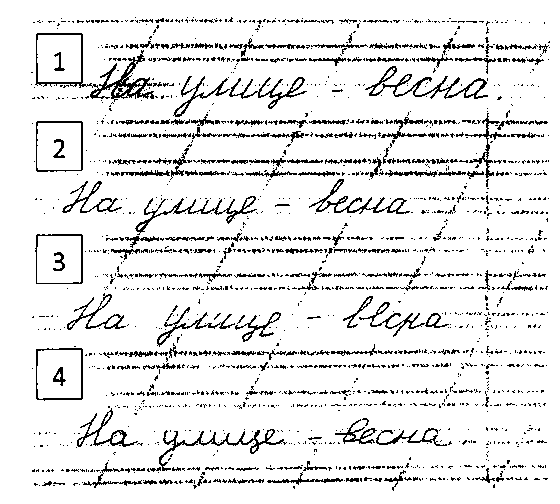 1
На улице - весна.
2
На улице - весна
3
На улице - весна
4
На улице - весна.